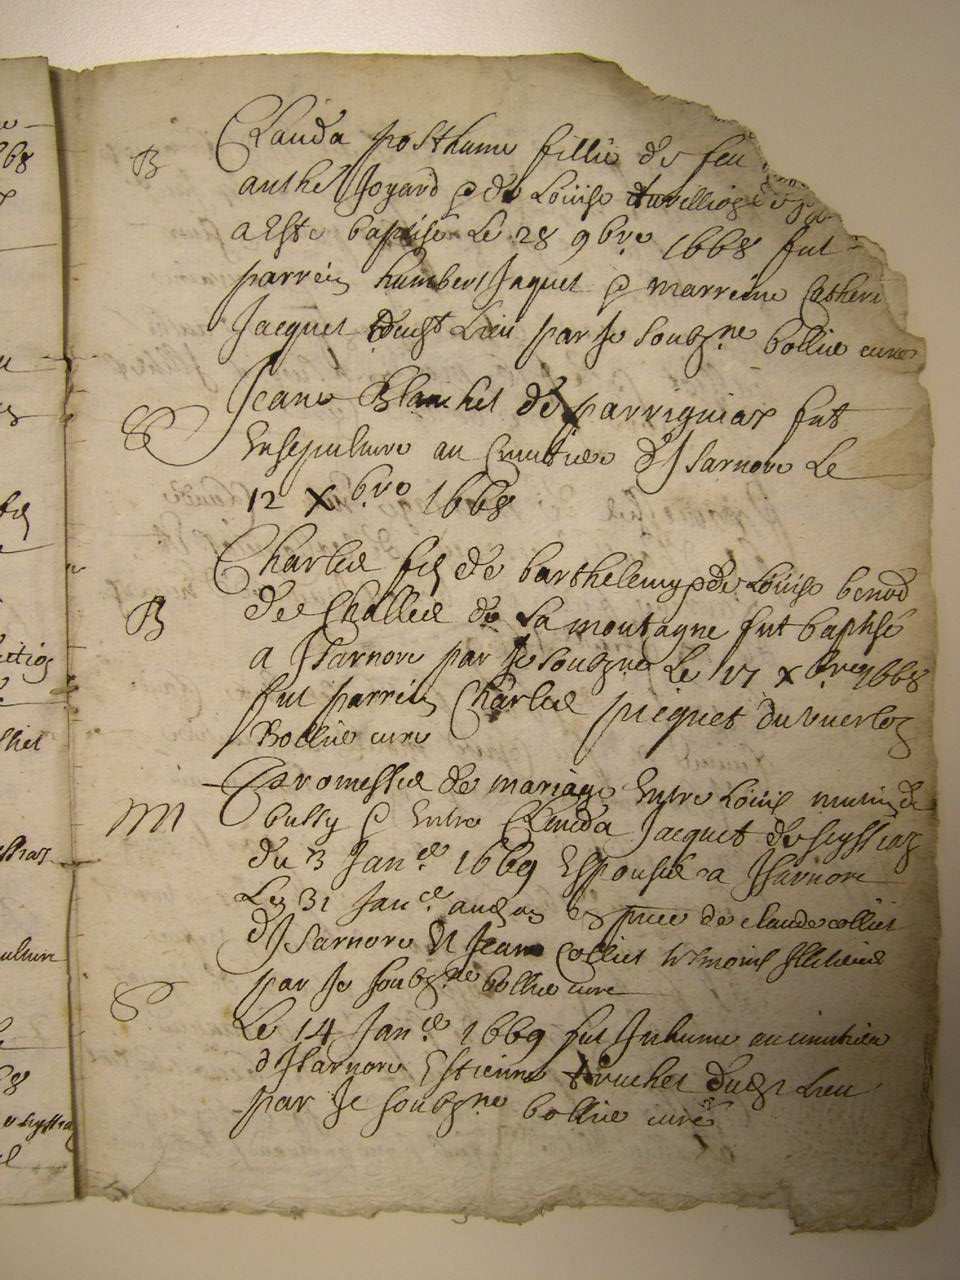 B
Clauda posthume fillie de feu
anthe Joyard & de Loüise
a Este baptisé Le 28 9bre 1668 fut
parrein humbert Jaquet & marreine Catheri
Jacquet dudt Lieu par Je soubzne bollie curé
S
Jeane Blanchet de parrignias fut
Ensepulture au cimitiere d'Isarnore Le
12 Xbre 1668
B
Charles fils de barthelemy & de Loüise benod
de Challes de La montagne fut baptisé
a Isarnore par Je soubzne Le 17 xbre 1668
fut parrein Charles picquet du
Bollie curé
M
Promesses de mariage Entre Loüis
bussy & Entre Clauda Jacquet de seyssiaz
du 3 Jance 1669 Espousé a Isarnore
Le 31 Jance audt an En pnce de claude colliet
d'Isarnore Et Jean Colliet tesmoins
par Je soubzne bollie curé
S
Le 14 Jance 1669 fut Inhumé au cimitiere
d'Isarnore Estienne truchet dudt Lieu
par Je soubzne bollie curé